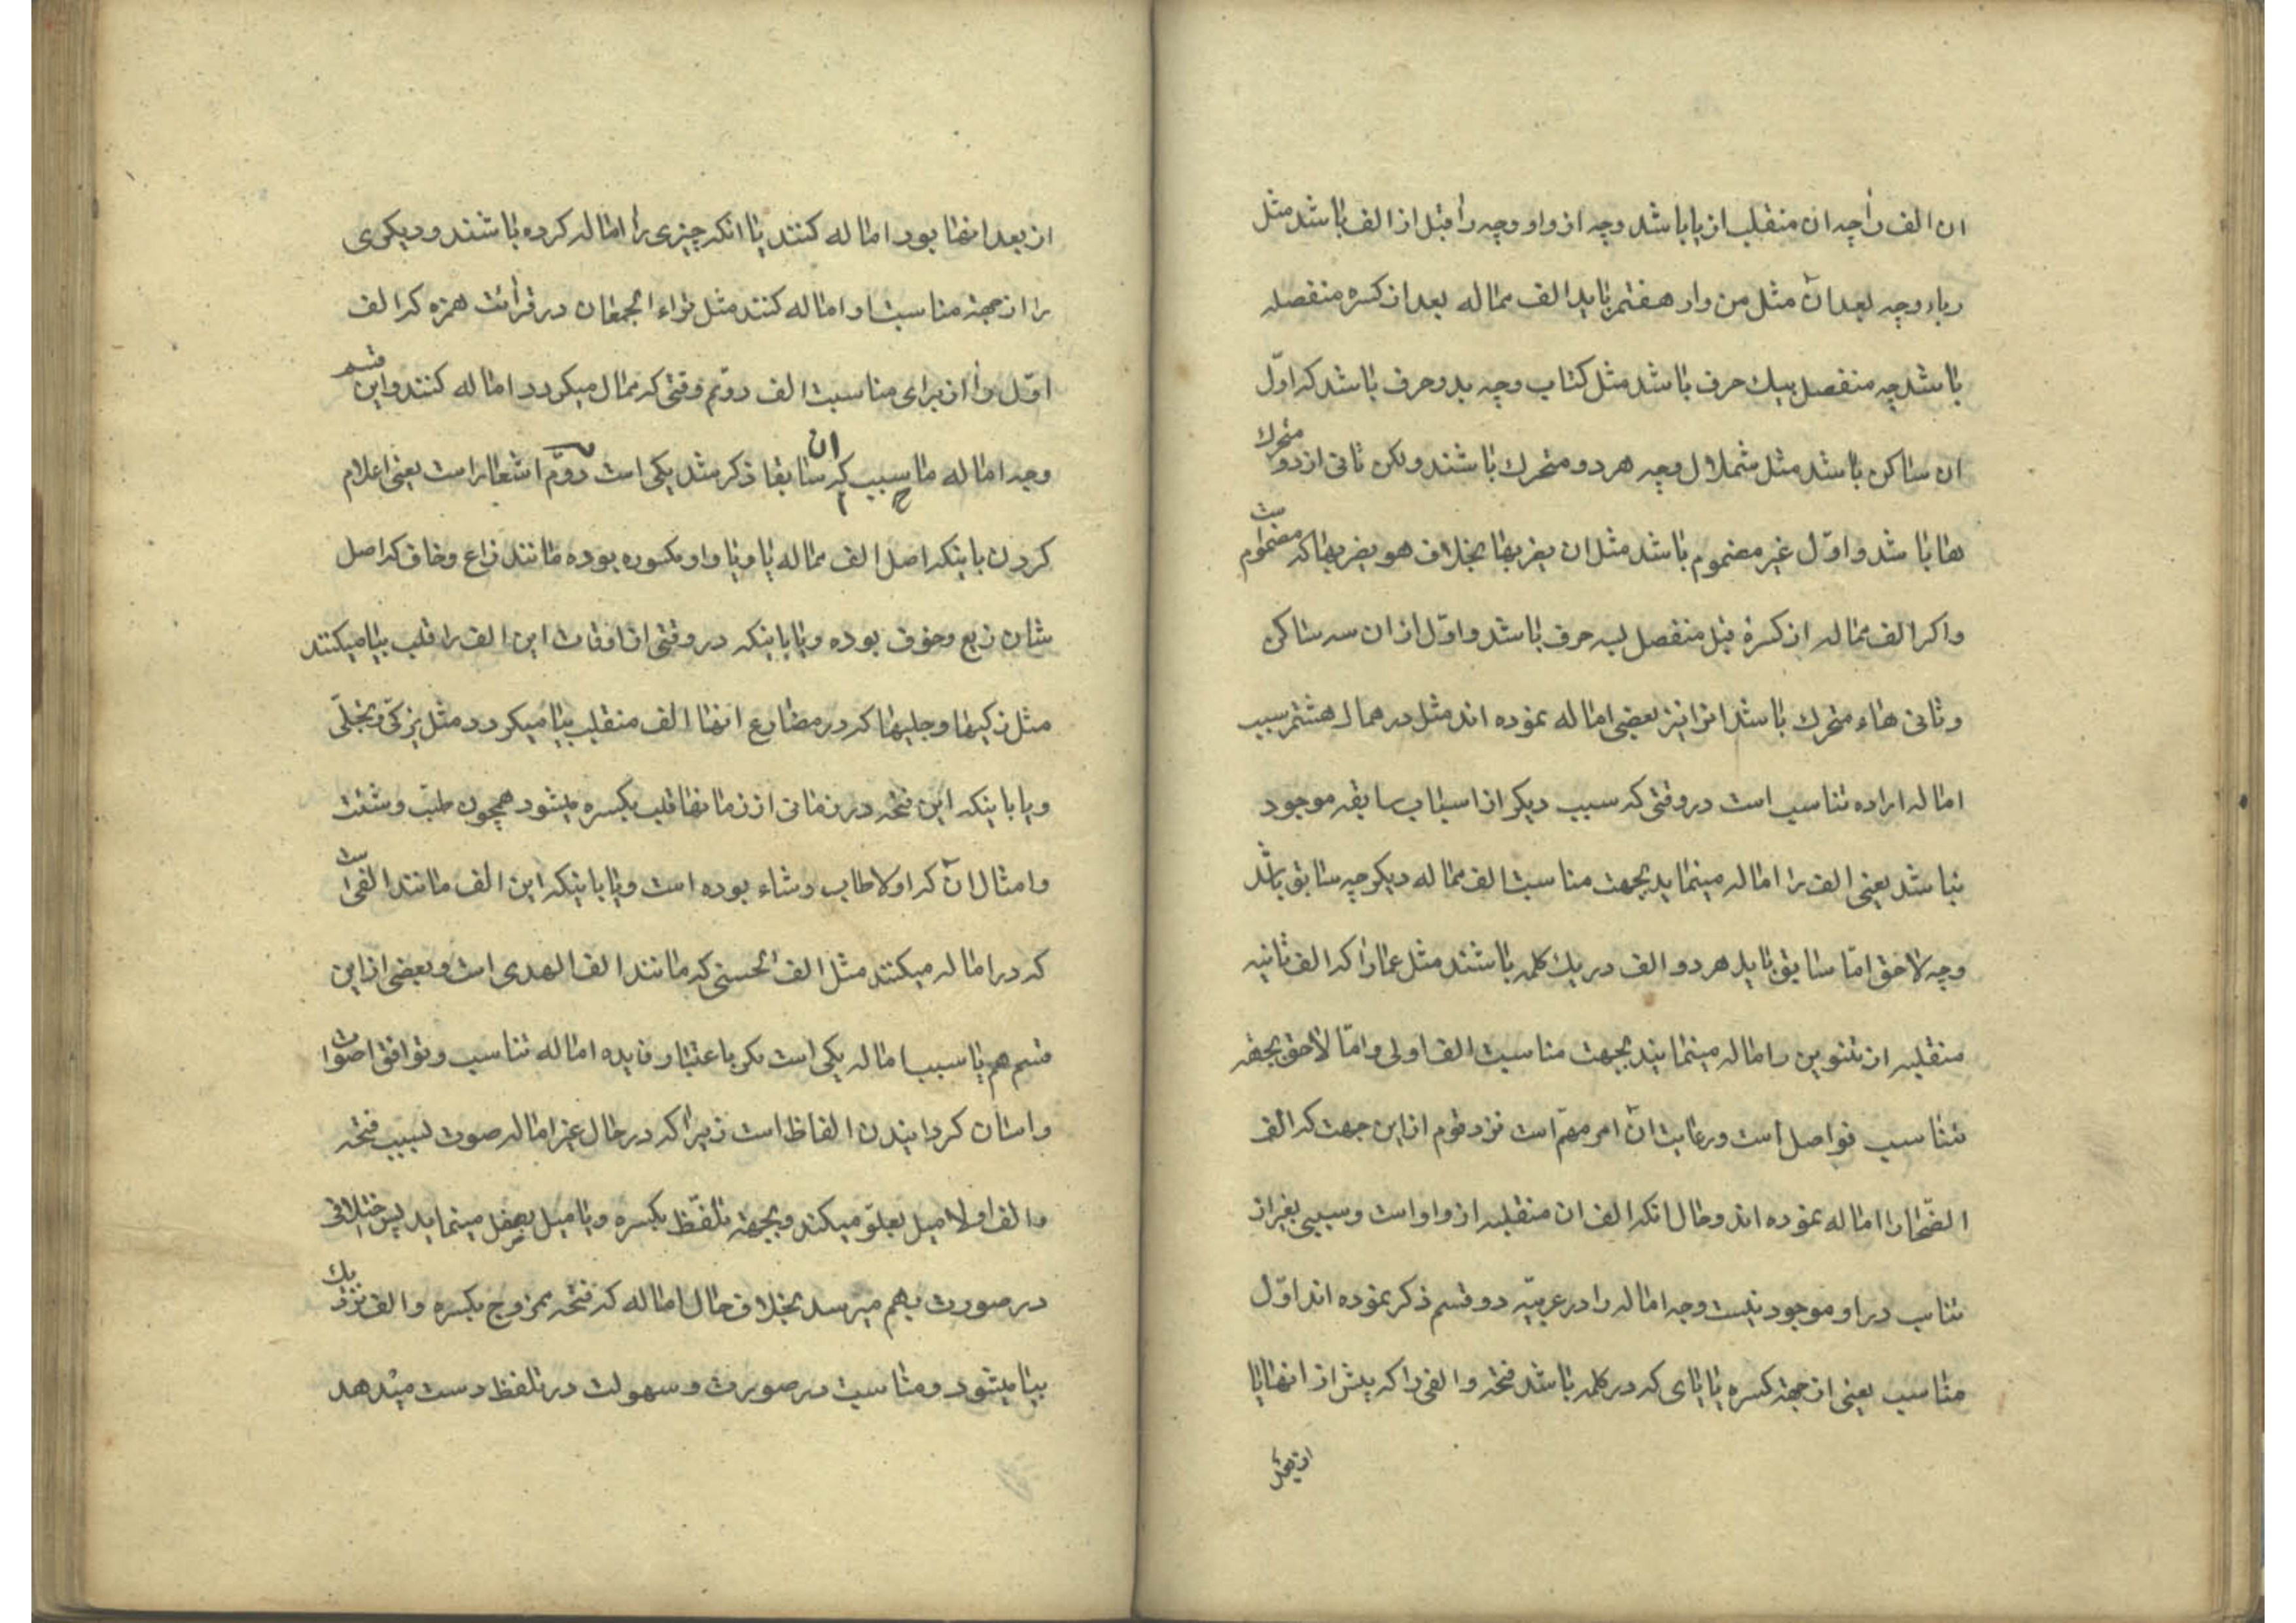 ان الف را چه ان منقلب از یا باشد و چه از واو و چه را قبل از الف باشد مثل
رباء و چه بعد ان مثل من وار هفتم باید الف مماله بعد از کسره منفصله
باشد چه منفصل بیك حرف باشد مثل کتاب و چه بدو حرف باشد که اوّل
ان ساکن باشد مثل شملال و چه هر دو متحرك باشند ولکن ثانی از دو متحرك
ها باشد و اوّل غیر مضموم باشد مثل ان یضربها بخلاف هو یضربها که مضموم است
و اکر الف مماله از کسرهٔ قبل منفصل بسه حرف باشد و اوّل از ان سه ساکن
و ثانی هاء متحرك باشد انرا نیز بعضی اماله نموده اند مثل درهمال هشتم سبب
اماله اراده تناسب است در وقتی که سبب دیکر از اسباب سابقه موجود
نباشد یعنی الف را اماله مینماید بجهت مناسبت الف مماله دیکر چه سابق باشد
و چه لاحق امّا سابق باید هر دو الف در یك کلمه باشند مثل عمادا که الف ثانیه
منقلبه از تنوین را اماله مینمایند بجهت مناسبت الف اولی و امّا لاحق بجهة
تناسب فواصل است و رعایت ان امر مهمّ است نزد قوم از این جهت که الف
الضّحی را اماله نموده اند و حال انکه الف ان منقلبه از واو است و سببی بغیر از
تناسب در او موجود نیست وجه اماله را در عربیّه دو قسم ذکر نموده اند اوّل
مناسب یعنی از جهة کسره یا یای که در کلمه باشد فتحه و الفی را که پیش از انها یا
از بعد
از بعد انها بود اماله کنند یا انکه چیزی را اماله کرده باشند و دیکری
را از جهة مناسبت او اماله کنند مثل تراء الجمعان در قرائت همزه که الف
اوّل را از برای مناسبت الف دوّم وقتی که ممال میکردد اماله کنند و این قسم
وجه اماله ما سبب ان که سابقا ذکر شد یکی است دوّم اشعار است یعنی اعلام
کردن باینکه اصل الف مماله یا و یا واو مکسوره بوده مانند زاع و خاف که اصل
شان زیع و خوف بوده و یا باینکه در وقتی از اوقات این الف را قلب بیا میکنند
مثل زکیها و جلیها که در مضارع انها الف منقلب بیا میکردد مثل یزکّی و یجلّی
و یا باینکه این فتحه در زمانی از زمانها قلب بکسره میشود همچون طبت و شئت
و امثال ان که اولا طاب و شاء بوده است و یا باینکه این الف مانند الفی است
که در اماله میکنند مثل الف الحسنی که مانند الف الهدی است و بعضی از این
قسم هم با سبب اماله یکی است مکر باعتبار و فایده اماله تناسب و توافق اصوات
و اسان کردانیدن الفاظ است زیرا که در حال غیر اماله صوت بسبب فتحه
و الف اولا میل بعلوّ میکند و بجهة تلفّظ بکسره و یا میل بسفل مینماید پس اختلافی
در صورت بهم میرسد بخلاف حال اماله که فتحه ممزوج بکسره و الف نزدیك
بیا میشود و مناسبت در صورت و سهولت در تلفظ دست میدهد